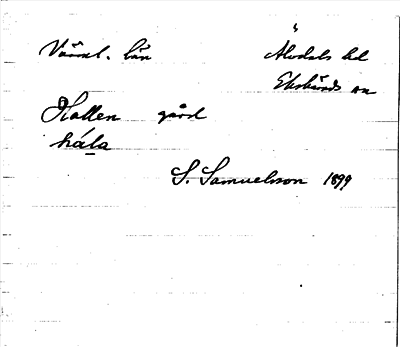 Värml. län Älvdals hd
Ekshärads sn
Hallen gård
hála
S. Samuelsson 1899